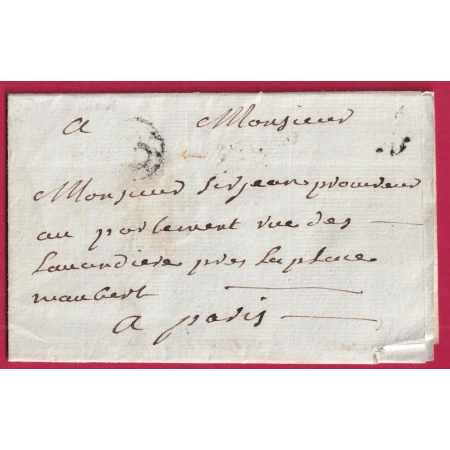 a Monsieur
Monsieur sirjean procureur
au parlement rue des
Lavandiere pres la place
maubert
a paris